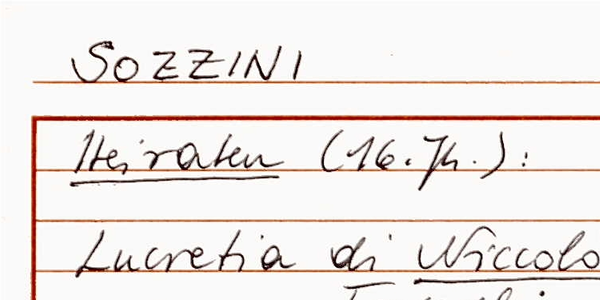 SOZZINI
Heiraten (16. Jh.):
Lucretia di Niccolo